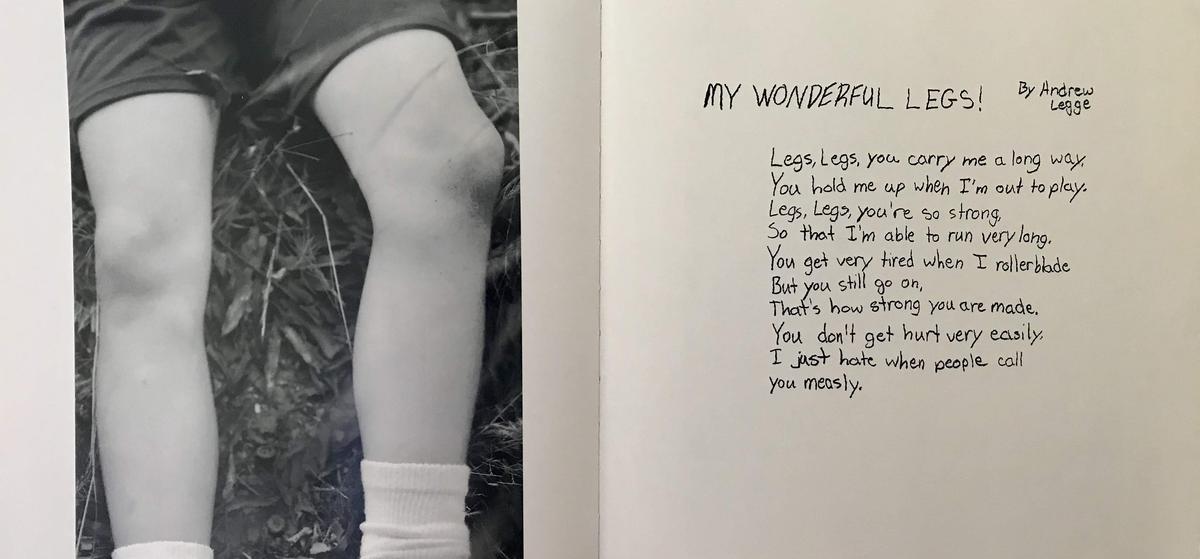 MY WONDERFUL LEGS! By Andrew
Legge
Legs, Legs, you carry me a long way,
You hold me up when I'm out to play.
Legs, Legs, you're so strong,
So that I'm able to run very long.
You get very tired when I rollerblade
But you still go on,
That's how strong you are made.
You don't get hurt very easily.
I just hate when people call
you measly.